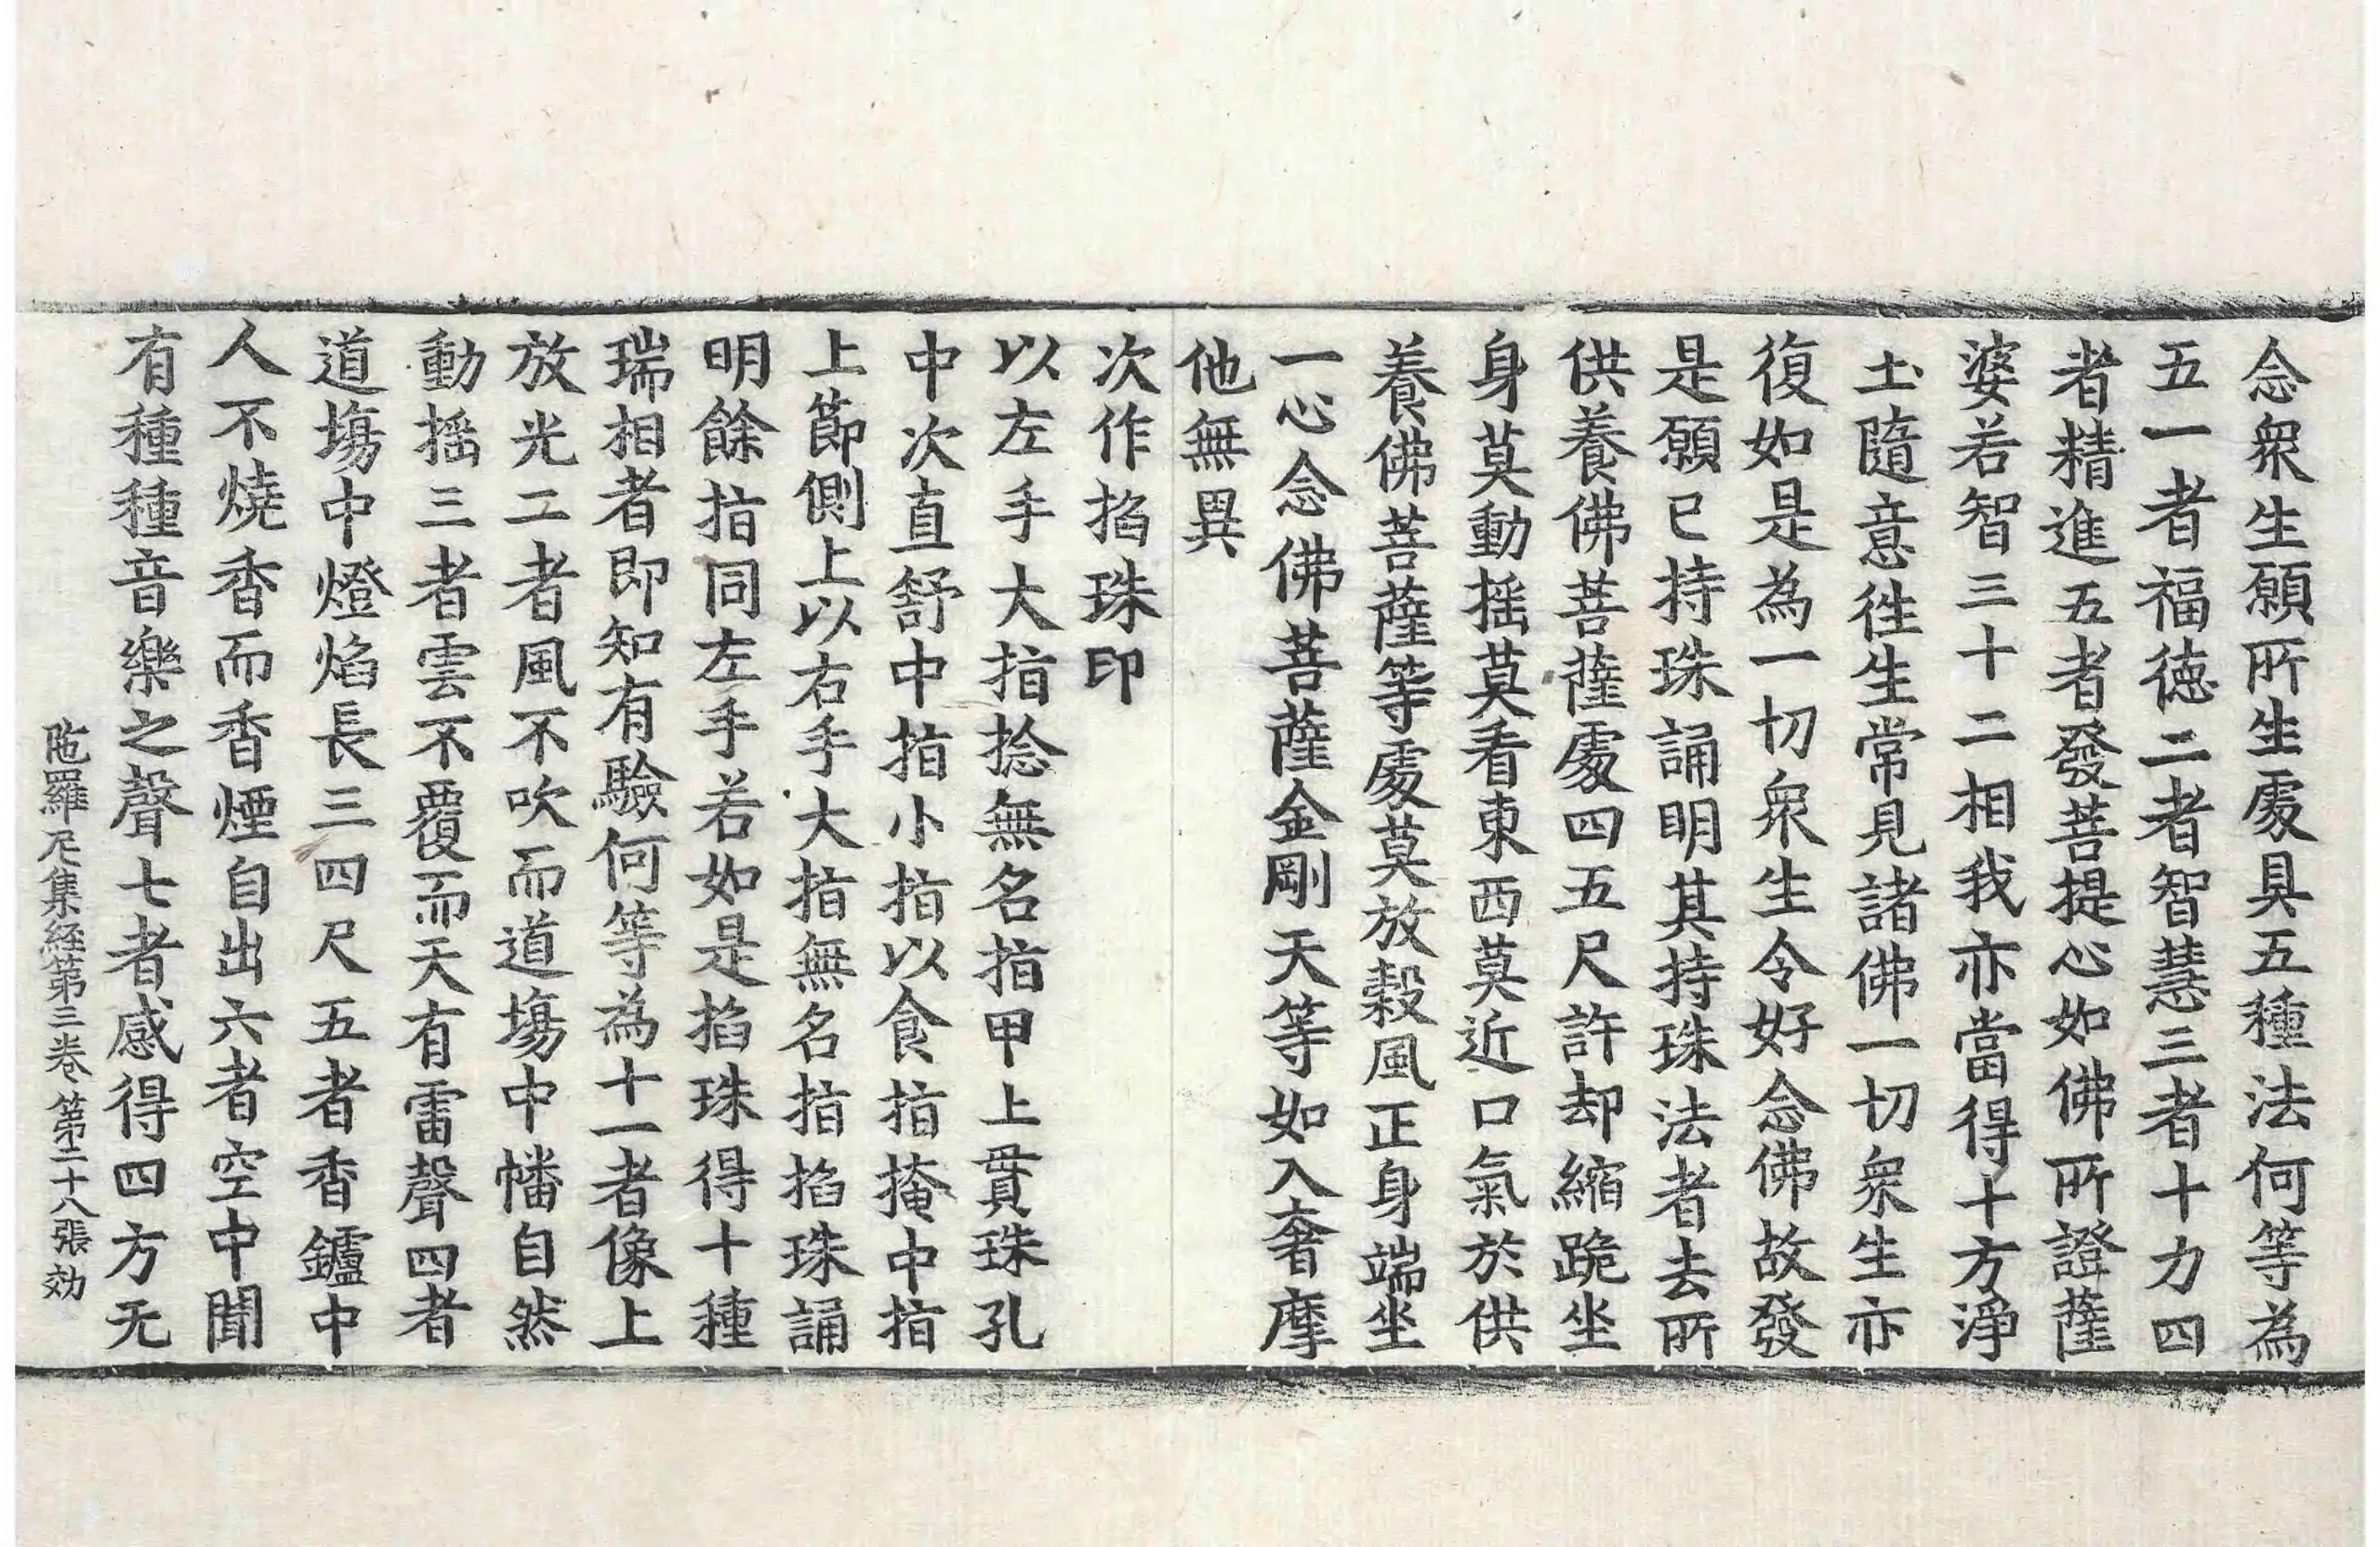 念衆生願所生處具五種法何等為
五一者福徳二者智慧三者十力四
者精進五者發菩提心如佛所證薩
婆若智三十二相我亦當得十方淨
土隨意徃生常見諸佛一切衆生亦
復如是為一切衆生令好念佛故發
是願已持珠誦明其持珠法者去所
供養佛菩薩處四五尺許却縮跪坐
身莫動揺莫看東西莫近口氣於供
養佛菩薩等處莫放穀風正身端坐
一心念佛菩薩金剛天等如入奢摩
他無異
次作掐珠印
以左手大指捻無名指甲上貫珠孔
中次直舒中指小指以食指掩中指
上節側上以右手大指無名指掐珠誦
明餘指同左手若如是掐珠得十種
瑞相者即知有驗何等為十一者像上
放光二者風不吹而道塲中幡自然
動揺三者雲不覆而天有雷聲四者
道塲中燈焰長三四尺五者香鑪中
人不燒香而香煙自出六者空中聞
有種種音樂之聲七者感得四方无
陁羅尼集経第三卷 第二十八張 効